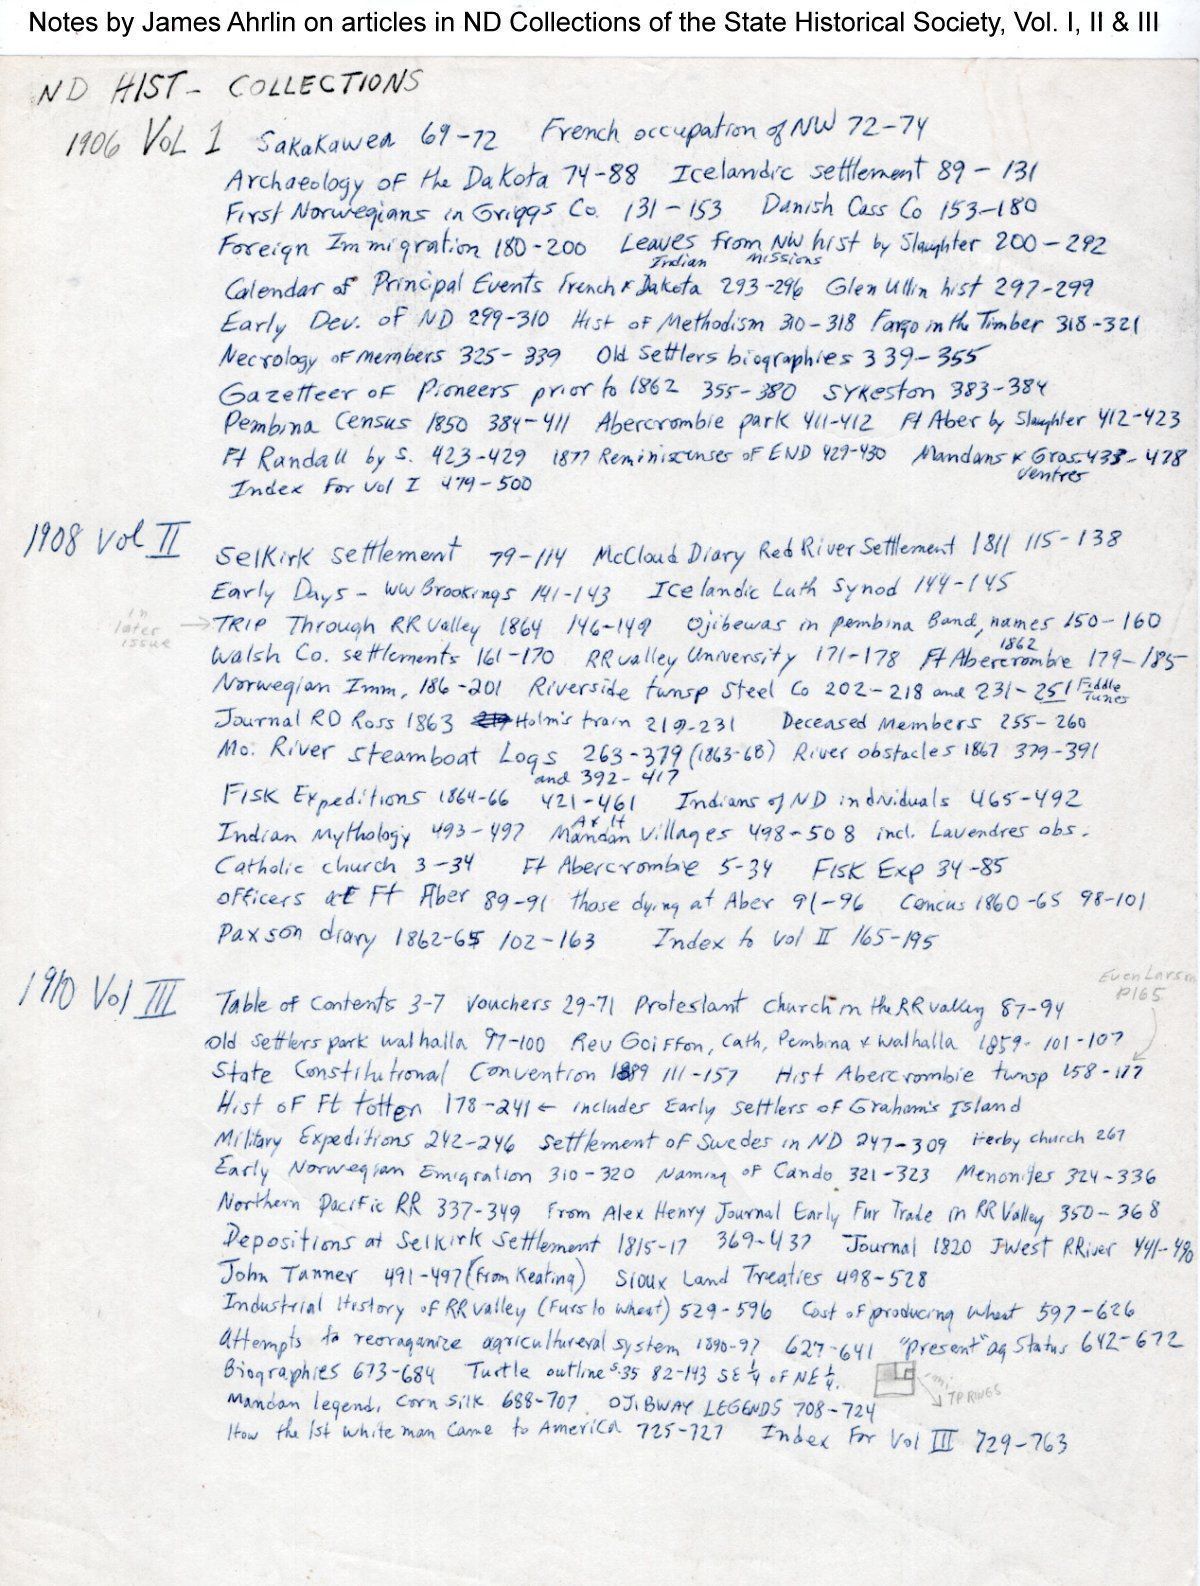 Notes by James Ahrlin on articles in ND Collections of the State Historical Society, Vol. I, II & III
ND HIST - COLLECTIONS
1906 VOL 1 Sakakawea 69-72 French occupation of NW 72-74
Archaeology of the Dakota 74-88 Icelandic settlement 89-131
First Norwegians in Griggs Co. 131-153 Danish Cass Co 153-180
Foreign Immigration 180-200 Leaves from NW hist by Slaughter 200-292
Indian missions
Calendar of Principal Events French & Dakota 293-296 Glen Ullin hist 297-299
Early Dev. of ND 299-310 Hist of Methodism 310-318 Fargo in the Timber 318-321
Necrology of members 325-339 Old Settlers biographies 339-355
Gazetteer of Pioneers prior to 1862 355-380 Sykeston 383-384
Pembina Census 1850 384-411 Abercrombie park 411-412 Ft Aber by Slaughter 412-423
Ft Randall by S. 423-429 1877 Reminiscenses of END 429-430 Mandans & Gros 433-478
Ventres
Index For Vol I 479-500
1908 Vol II
Selkirk settlement 79-114 McCloud Diary Red River Settlement 1811 115-138
Early Days - WW Brookings 141-143 Icelandic Luth Synod 144-145
in later issue → TRIP Through RR Valley 1864 146-149 Ojibewas in pembina Band, names 150-160
1862
Walsh Co. settlements 161-170 RR valley University 171-178 Ft Abercrombie 179-185
Norwegian Imm, 186-201 Riverside twnsp Steel Co 202-218 and 231-251 Fiddle Tunes
Journal RD Ross 1863 Holm's train 219-231 Deceased Members 255-260
Mo. River Steamboat Logs 263-379 (1863-68) River obstacles 1867 379-391
and 392-417
Fisk Expeditions 1864-66 421-461 Indians of ND individuals 465-492
A & H
Indian Mythology 493-497 Mandan Villages 498-508 incl. Lavendres obs.
Catholic church 3-34 Ft Abercrombie 5-34 Fisk Exp 34-85
officers at Ft Aber 89-91 those dying at Aber 91-96 Cencus 1860-65 98-101
Paxson diary 1862-65 102-163 Index to Vol II 165-195
Even Larson
P165
1910 Vol III
Table of Contents 3-7 Vouchers 29-71 Protestant church in the RR valley 87-94
Old settlers park walhalla 97-100 Rev Goiffon, Cath, Pembina & Walhalla 1859- 101-107
State Constitutional Convention 1889 111-157 Hist Abercrombie twnsp 158-177
Hist of Ft totten 178-241 ← includes Early settlers of Graham's Island
Military Expeditions 242-246 Settlement of Swedes in ND 247-309 Herby church 267
Early Norwegian Emigration 310-320 Naming of Cando 321-323 Menonites 324-336
Northern Pacific RR 337-349 From Alex Henry Journal Early Fur Trade in RR Valley 350-368
Depositions at Selkirk Settlement 1815-17 369-437 Journal 1820 JWest RRiver 441-490
John Tanner 491-497 (From Keating) Sioux Land Treaties 498-528
Industrial History of RR valley (furs to wheat) 529-596 Cost of producing wheat 597-626
Attempts to reoraganize agricultureral system 1890-97 627-641 "Present" ag Status 642-672
Biographies 673-684 Turtle outline S.35 82-143 SE ¼ of NE ¼.
TP RINGS
Mandan legend, corn silk. 688-707. OJIBWAY LEGENDS 708-724
How the 1st white man came to America 725-727 Index For Vol III 729-763